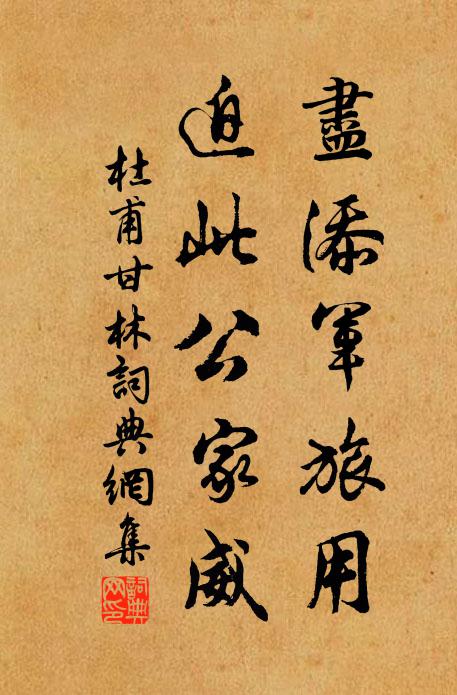 盡添軍旅用
迫此公家威
杜甫甘林詞典網集
詞典網印